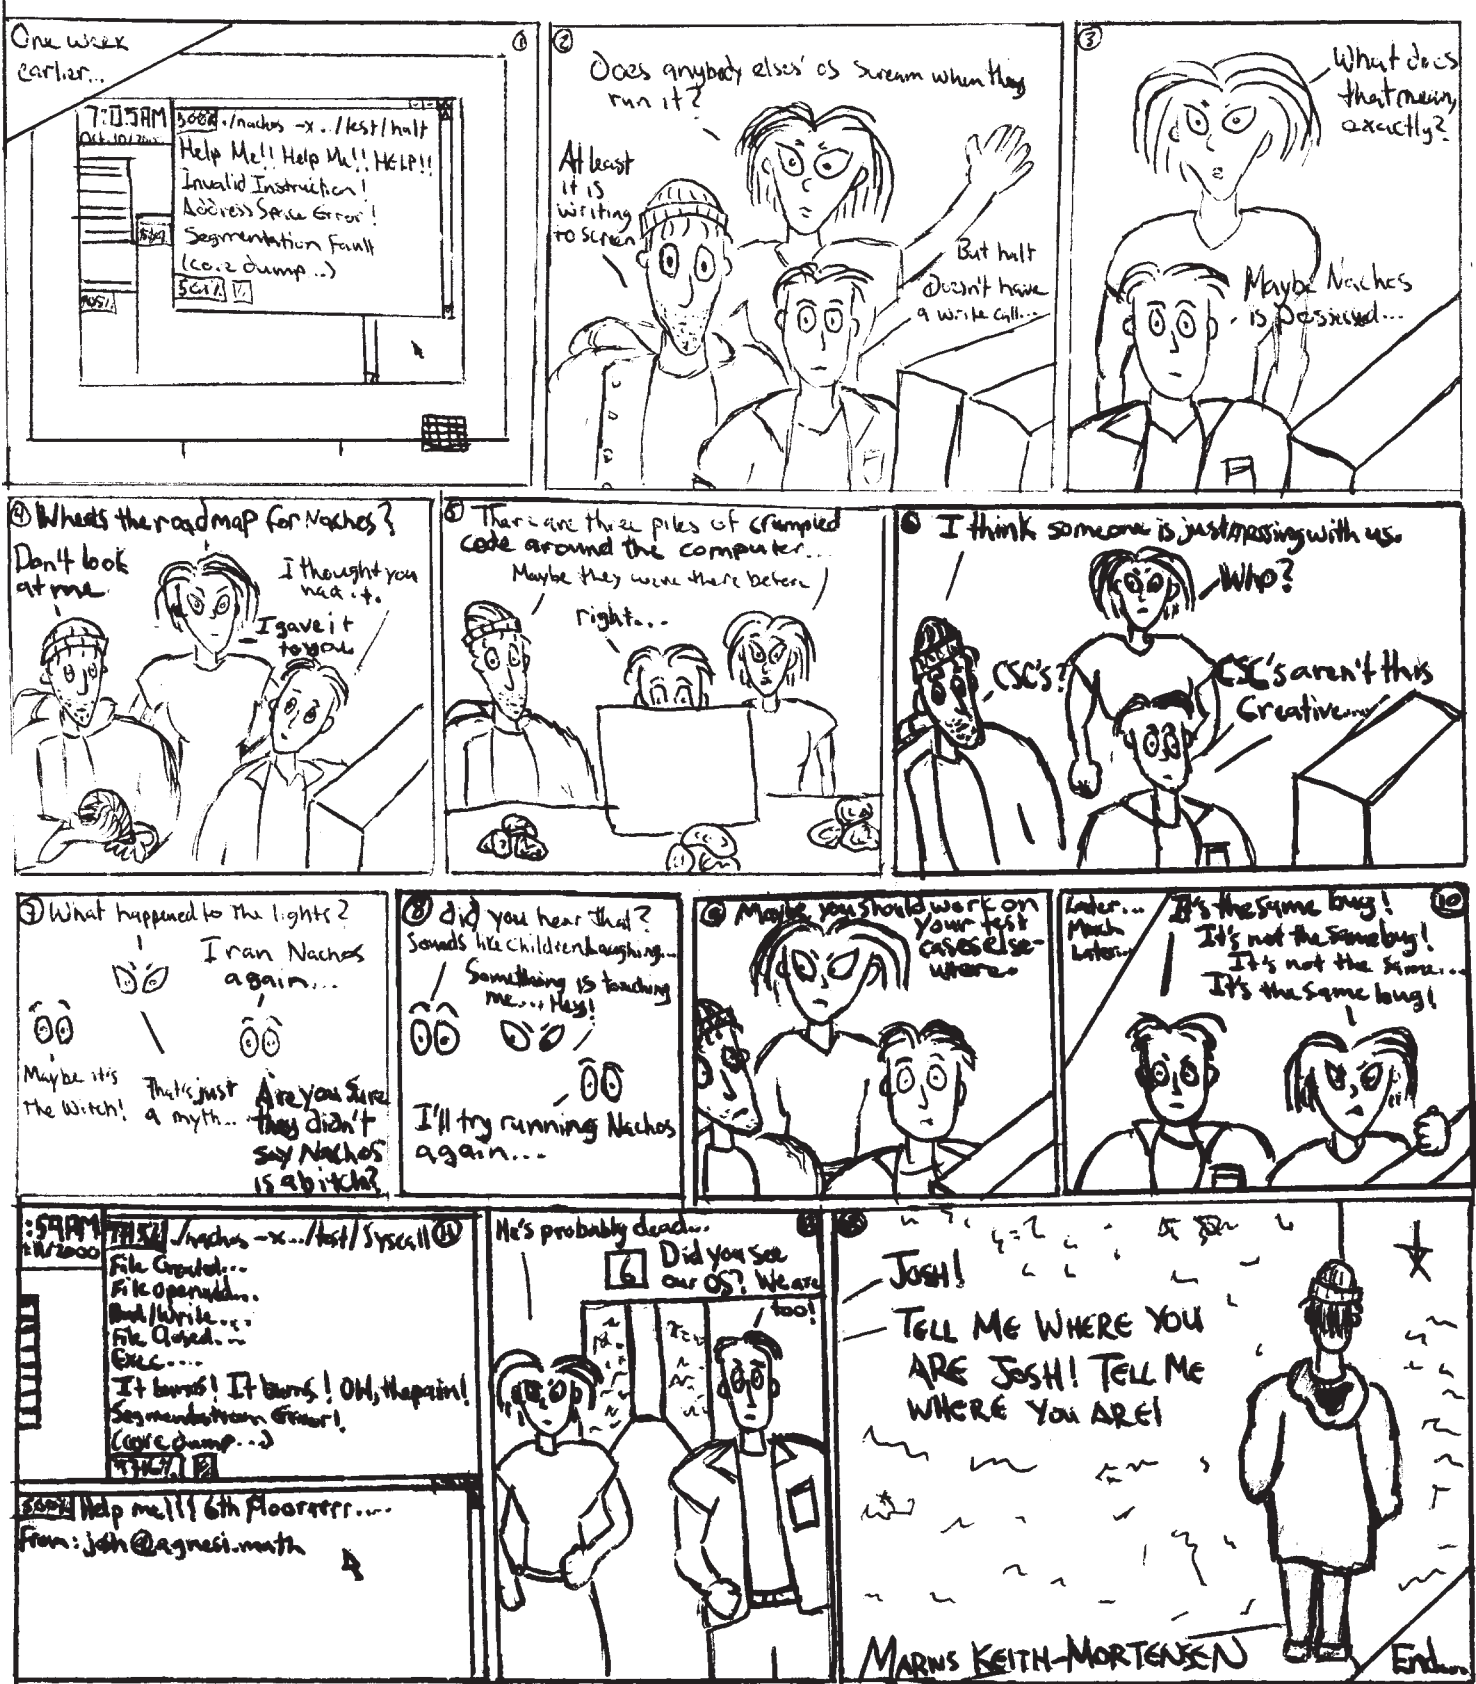 One week
earlier...
1
7:05AM
Oct. 10/200
./nachos -x ../test/halt
Help Me!! Help Me!! HELP!!
Invalid Instruction!
Address Space Error!
Segmentation Fault
(core dump...)
2
Does anybody elses' os scream when they
run it?
At least
it is
writing
to screen
But halt
doesn't have
a write call...
3
What does
that mean,
exactly?
Maybe Nachos
is possessed...
4
Where's the roadmap for Nachos?
Don't look
at me.
I thought you
had it.
I gave it
to you.
5
There are three piles of crumpled
code around the computer...
Maybe they were there before
right...
6
I think someone is just messing with us.
Who?
CSC's?
CSC's aren't this
Creative....
7
What happened to the lights?
I ran Nachos
again...
Maybe it's
the Witch!
That's just
a myth...
Are you sure
they didn't
say Nachos
is a bitch?
8
did you hear that?
Sounds like children laughing...
Something is touching
me... Hey!
I'll try running Nachos
again...
9
Maybe you should work on
your test
cases else-
where.
Later...
Much
Later...
10
It's the same bug!
It's not the same bug!
It's not the same...
It's the same bug!
:59AM
/2000
./nachos -x ../test/Syscall
11
File Created...
File opened...
Read/Write...
File Closed...
Exec....
It burns! It burns! OW, the pain!
Segmentation Error!
(core dump...)
Help me!!! 6th Floorrrrr....
From: josh@agnesi.math
He's probably dead...
6
Did you see
our OS? We are
too!
JOSH!
TELL ME WHERE YOU
ARE JOSH! TELL ME
WHERE YOU ARE!
KEITH-MORTENSEN
End...